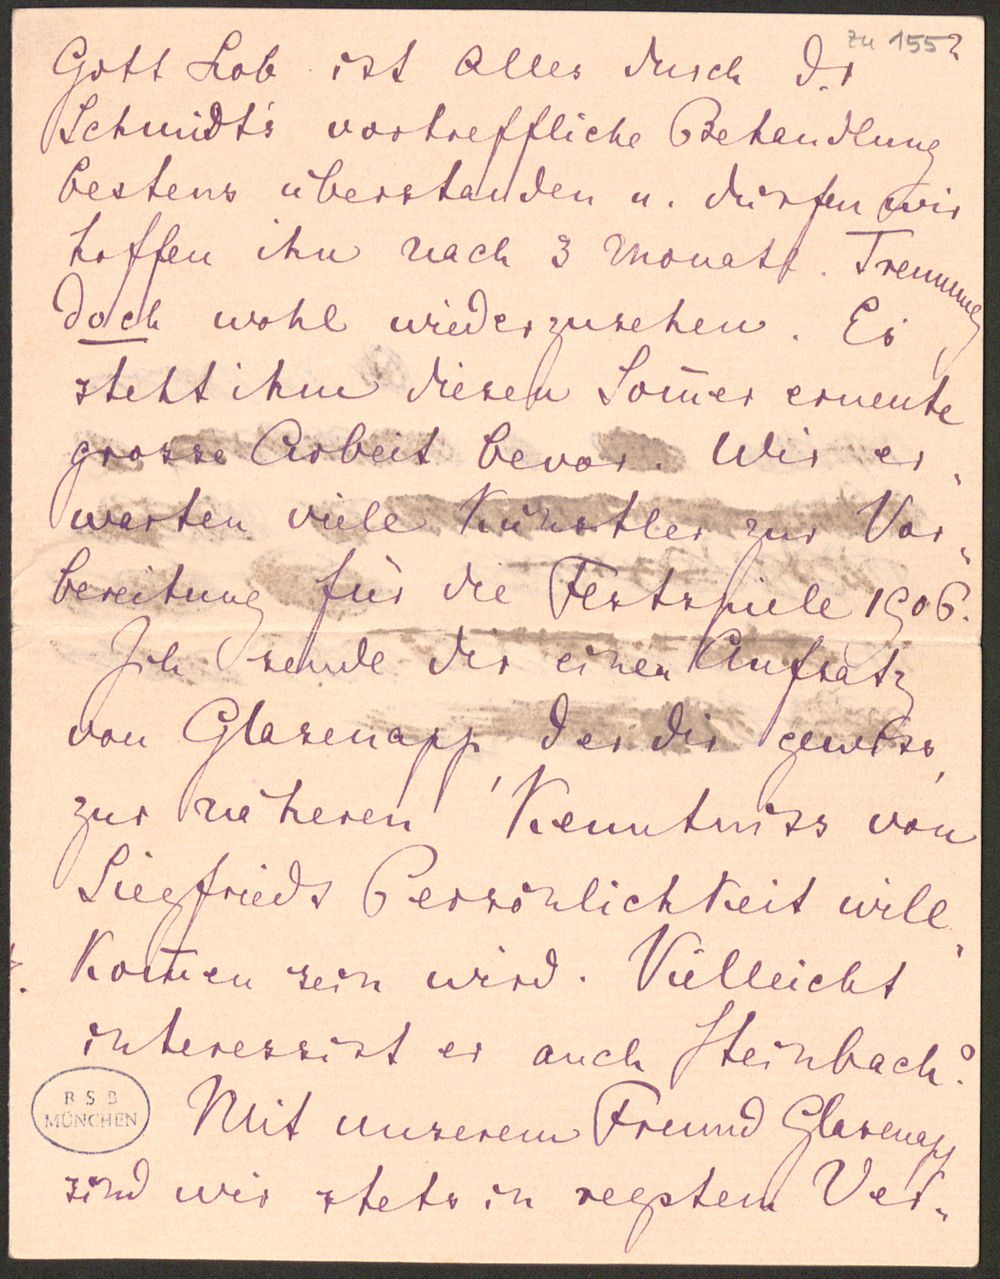 zu 155?
Gott Lob ist Alles durch Dr
Schmidt's vortreffliche Behandlung
bestens überstanden u. dürfen wir
hoffen ihn nach 3 monatl. Trennung
doch wohl wiederzusehen. Es
steht ihm diesen Som̅er erneute
grosse Arbeit bevor. Wir er-
warten viele Künstler zur Vor-
bereitung für die Festspiele 1906.
Ich sende dir einen Aufsatz
von Glasenapp, der dir gewiss,
zur näheren Kenntniss von
Siegfrieds Persönlichkeit will-
kom̅en sein wird. Vielleicht
interessirt er auch Steinbach?
R S B
MÜNCHEN
Mit unserem Freund Glasenapp
sind wir stets in regstem Ver-